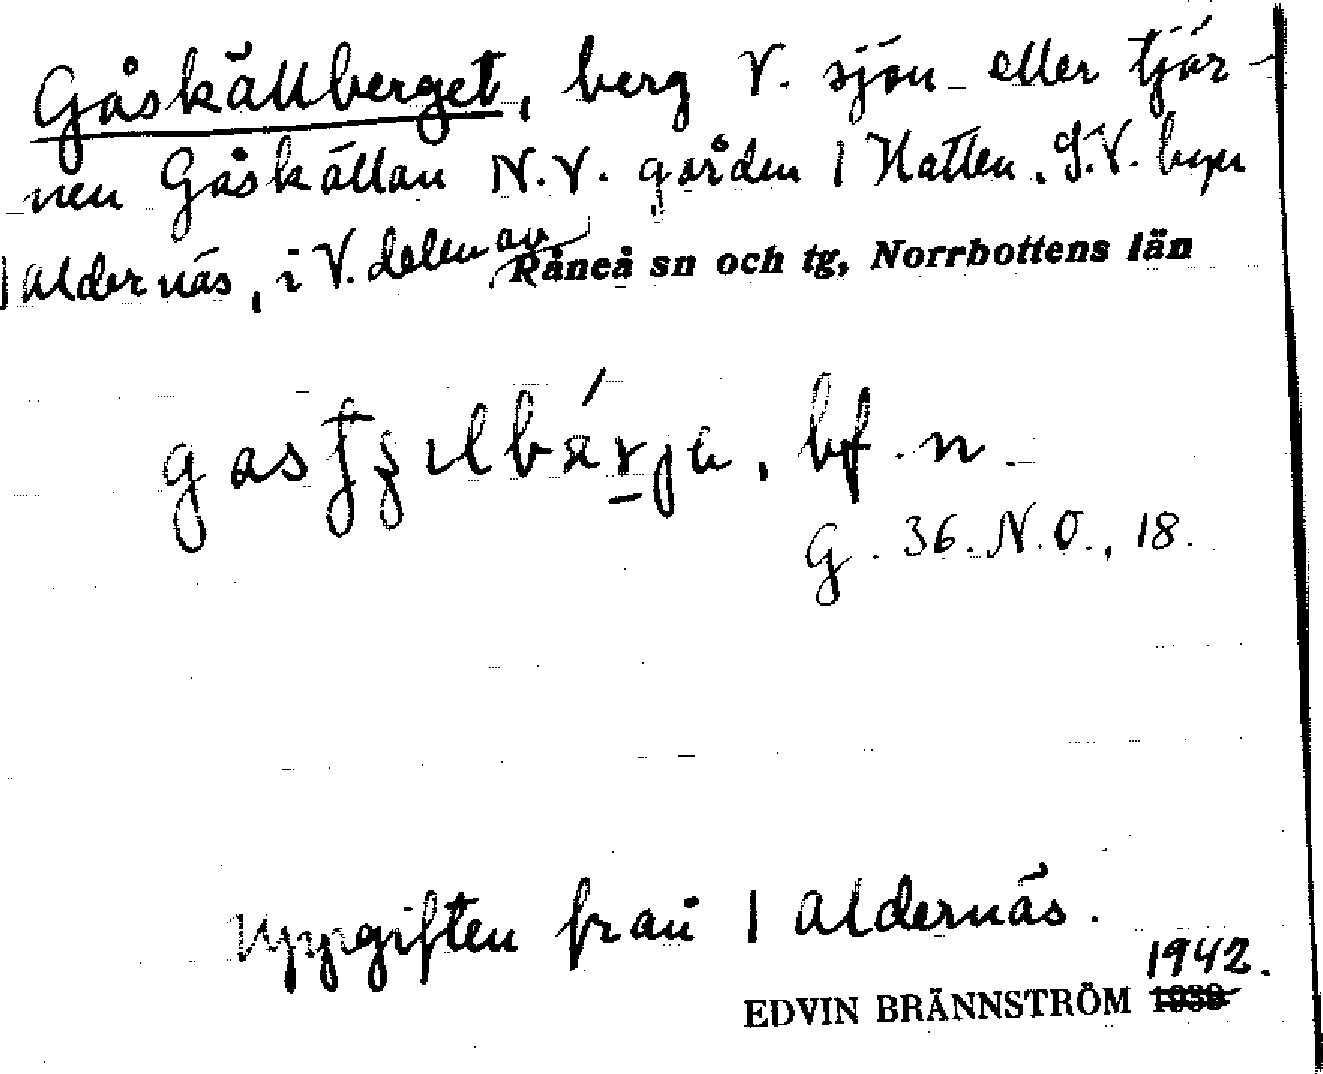 Gåskällberget, berg V. sjön eller tjär-
nen Gåskällan N.V. gården | Hatten, S.V. byn
| Aldernäs, i V. delen av Råneå sn och tg, Norrbottens län
bf. n.
G. 36. N.O., 18.
Uppgiften från | Aldernäs.
1942.
EDVIN BRÄNNSTRÖM 1939